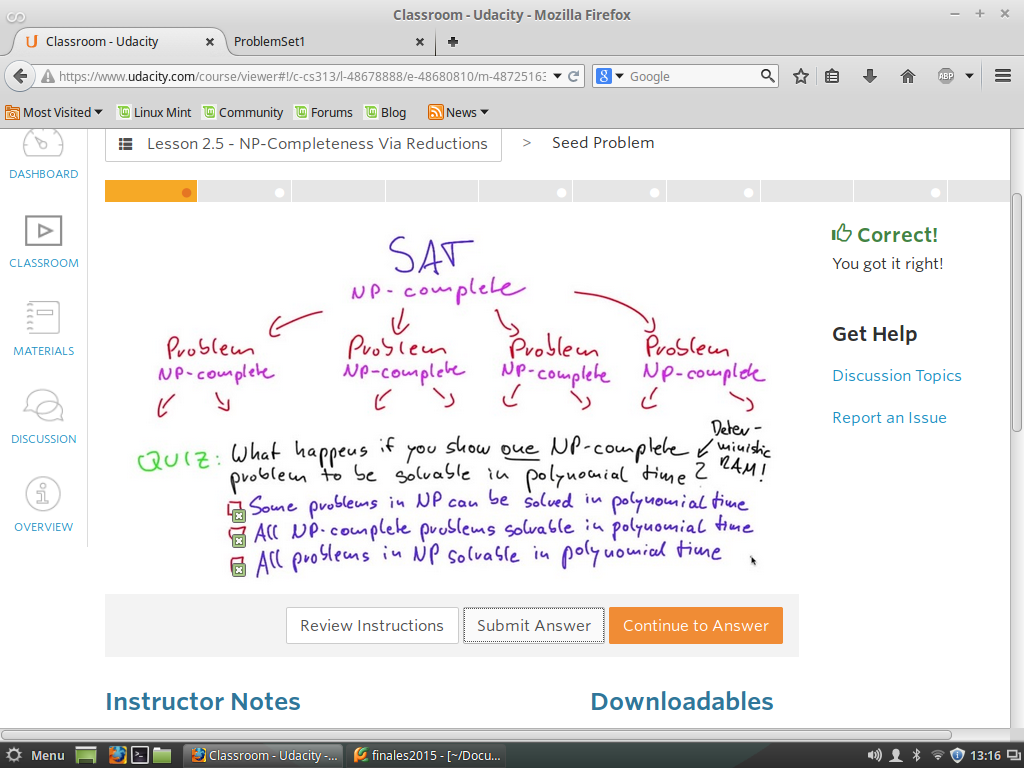 Classroom - Udacity - Mozilla Firefox
Classroom - Udacity
ProblemSet1
https://www.udacity.com/course/viewer#!/c-cs313/l-48678888/e-48680810/m-48725163
Google
ABP
Most Visited
Linux Mint
Community
Forums
Blog
News
Lesson 2.5 - NP-Completeness Via Reductions > Seed Problem
DASHBOARD
CLASSROOM
MATERIALS
DISCUSSION
OVERVIEW
SAT
NP-complete
Problem Problem Problem Problem
NP-complete NP-complete NP-complete NP-complete
QUIZ: What happens if you show one NP-complete
problem to be solvable in polynomial time?
Deter-
ministic
RAM!
Some problems in NP can be solved in polynomial time
All NP-complete problems solvable in polynomial time
All problems in NP solvable in polynomial time
Correct!
You got it right!
Get Help
Discussion Topics
Report an Issue
Review Instructions
Submit Answer
Continue to Answer
Instructor Notes
Downloadables
Menu
Classroom - Udacity -...
finales2015 - [~/Docu...
13:16